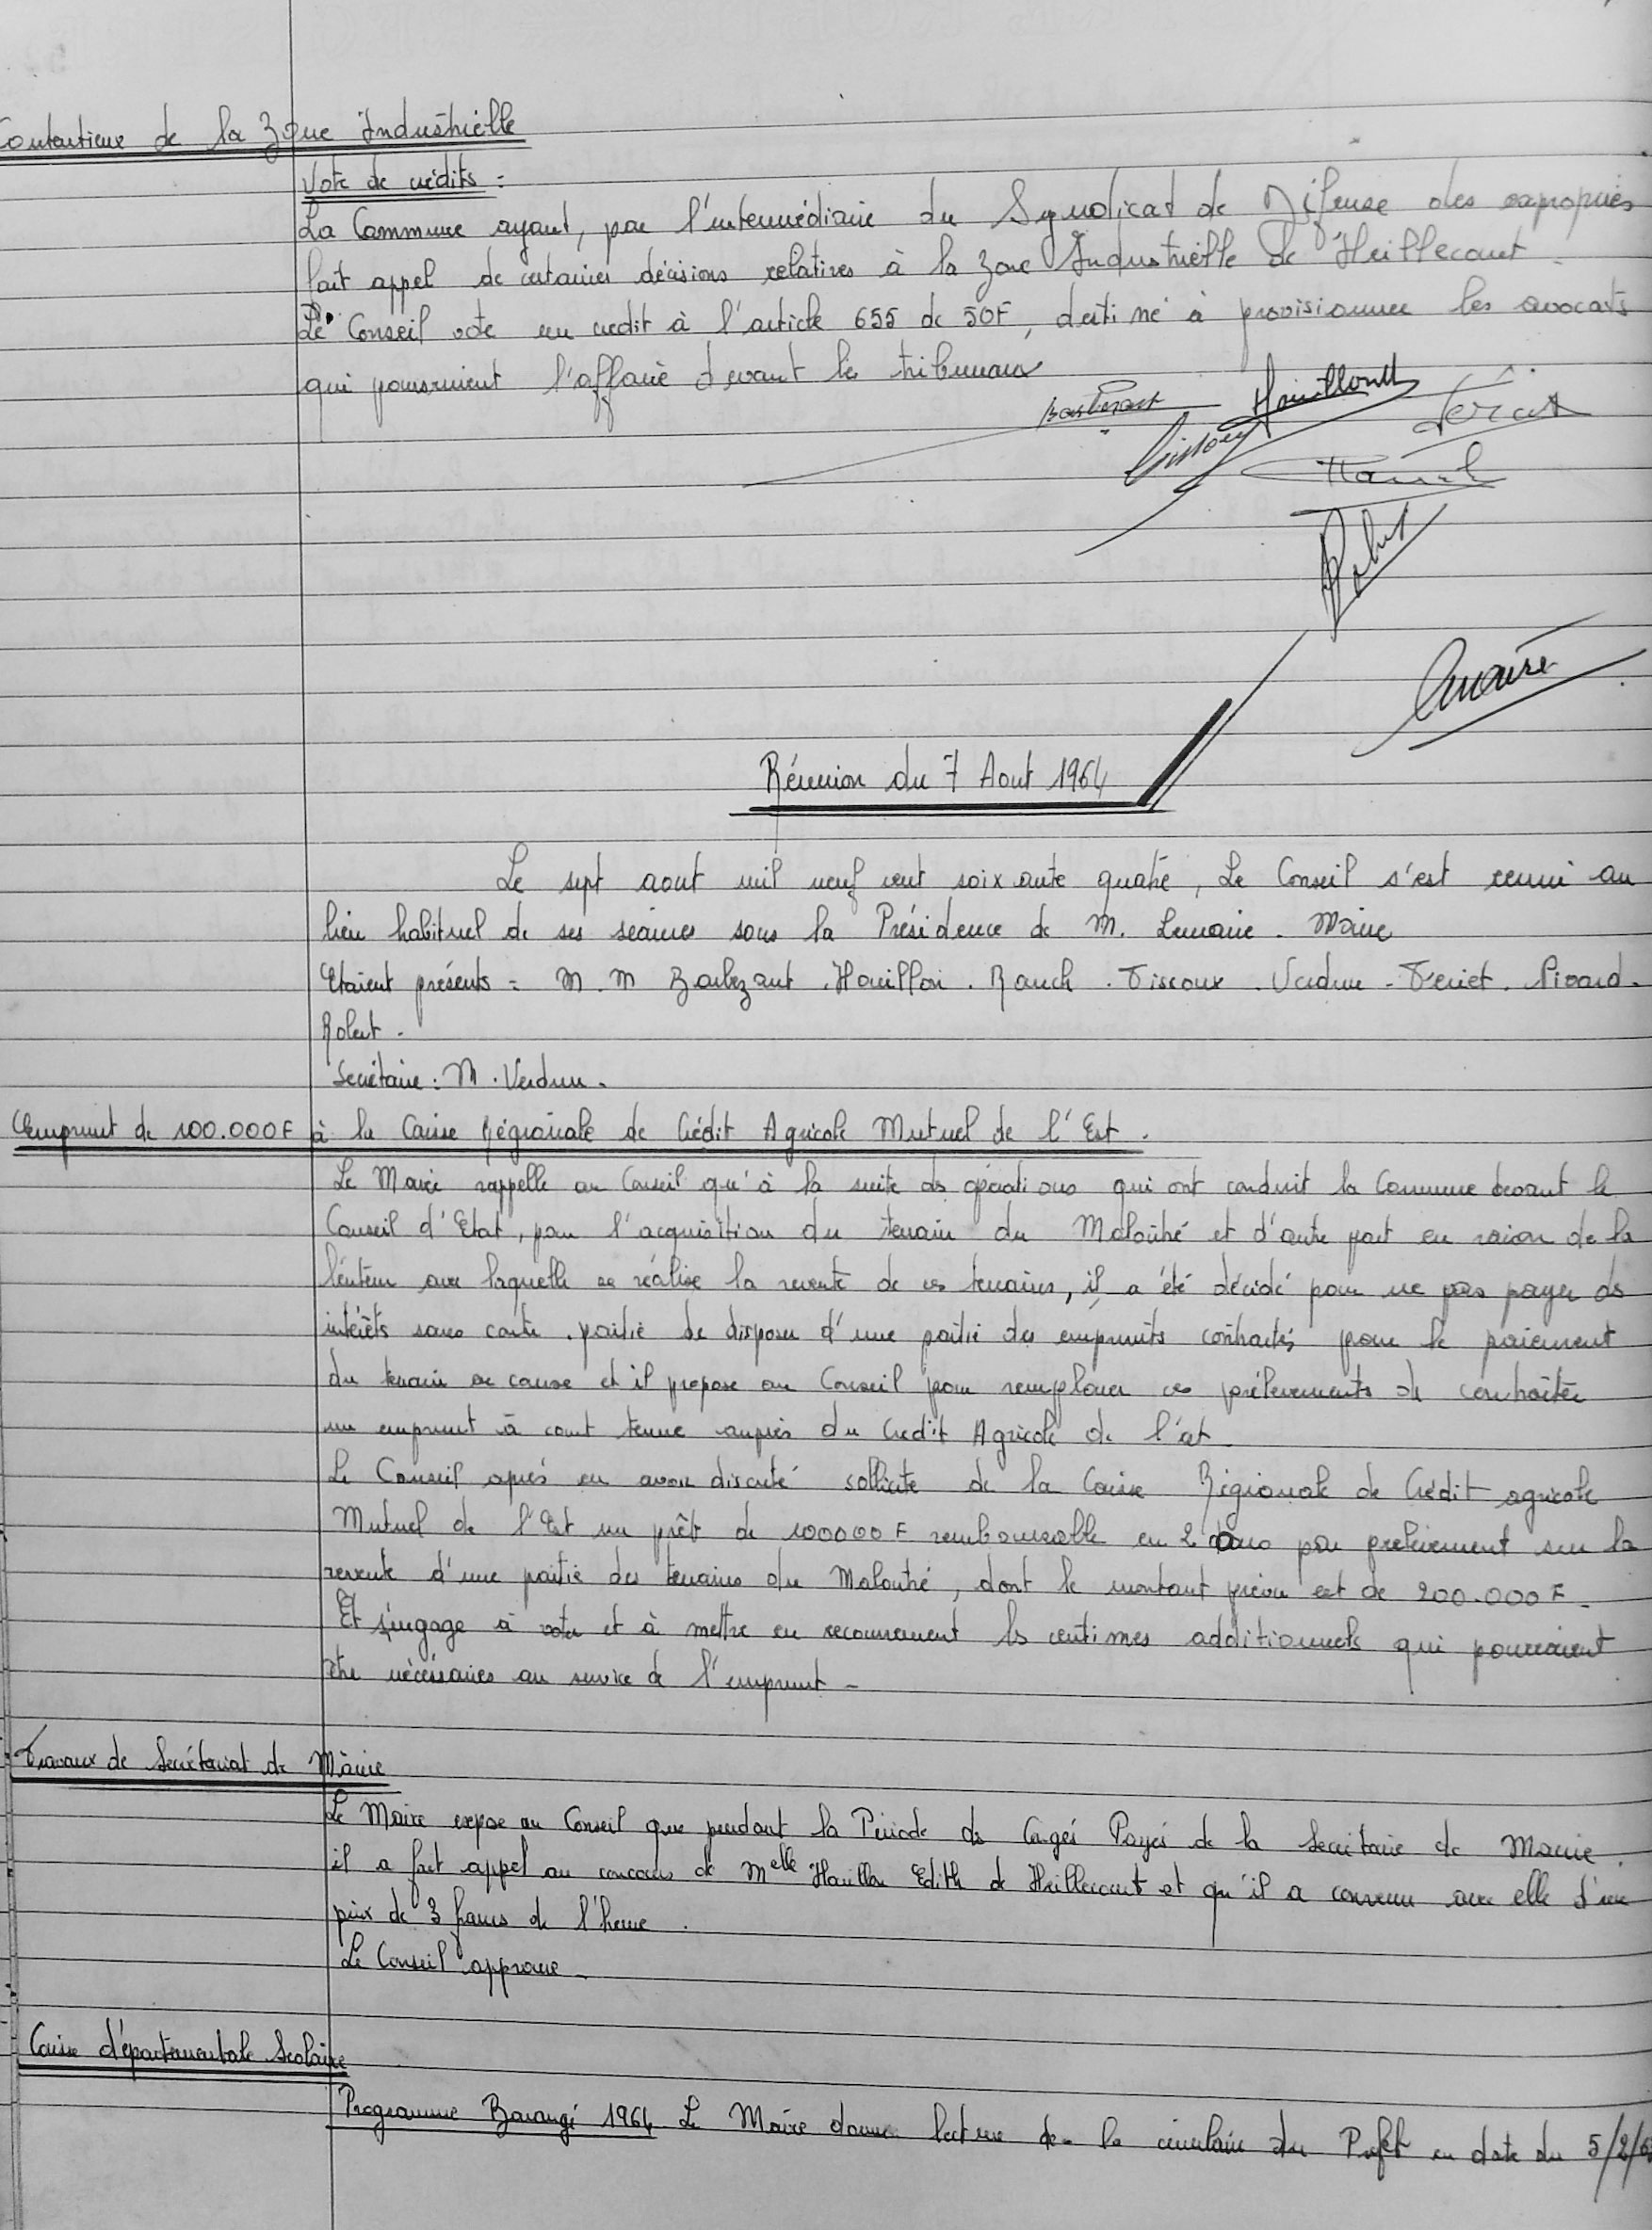 Contentieux de la Zone Industrielle
Vote de crédits :
La Commune ayant, par l'intermédiaire du Syndicat de Défense des expropriés
fait appel de certaines décisions relatives à la zone Industrielle de Heillecourt.
Le Conseil vote un credit à l'article 655 de 50F, destiné à provisionner les avocats
qui poursuivent l'affaire devant les tribunaux
Barbezant Houillon
Robert
Lemaire
Réunion du 7 Aout 1964
Le sept aout mil neuf cent soixante quatre, Le Conseil s'est reuni au
lieu habituel de ses séances sous la Présidence de M. Lemaire. Maire
Etaient présents : M. M Barbezant . Houillon . Rauch . Tissoux . Verdun - Feriet . Sivard.
Robert.
Secrétaire : M. Verdun.
Emprunt de 100.000F à la Caisse Régionale de Crédit Agricole Mutuel de l'Est.
Le Maire rappelle au Conseil qu'à la suite des opérations qui ont conduit la Commune devant le
Conseil d'Etat, pour l'acquisition du terrain du Malouhé et d'autre part en raison de la
lenteur avec laquelle se réalise la revente de ces terrains, il a été décidé pour ne pas payer des
intérêts sans contre. partie de disposer d'une partie des emprunts contractés pour le paiement
du terrain en cause et il propose au Conseil pour remplacer ces prélèvements de contracter
un emprunt à court terme auprès du Credit Agricole de l'est.
Le Conseil après en avoir discuté sollicite de la Caisse Régionale de Crédit agricole
Mutuel de l'Est un prêt de 100000F remboursable en 2 ans par prelevement sur la
revente d'une partie des terrains du Malouhé, dont le montant prévu est de 200.000F.
Et s'engage à voter et à mettre en recouvrement les centimes additionnels qui pourraient
être nécessaires au service de l'emprunt -
Travaux de Secrétariat de Mairie
Le Maire expose au Conseil que pendant la Période des Congés Payés de la Secrétaire de Mairie.
il a fait appel au concours de Melle Houillon Edith de Heillecourt et qu'il a convenu avec elle d'un
prix de 3 francs de l'heure.
Le Conseil approuve -
Caisse départementale Scolaire
Programme Barangé 1964 Le Maire donne lecture de la circulaire du Préfet en date du 5/2/6